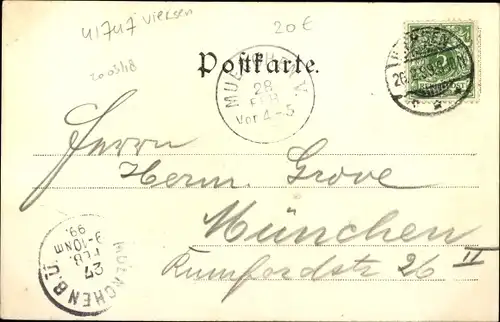 41747 Viersen
20 €
200318
Postkarte.
28
FEB
Vor 4-5
Herrn
Herm. Grove
München
Rumfordstr 26 II
MUENCHEN B.Ü.
27
FEB.
9-10 NM
99.